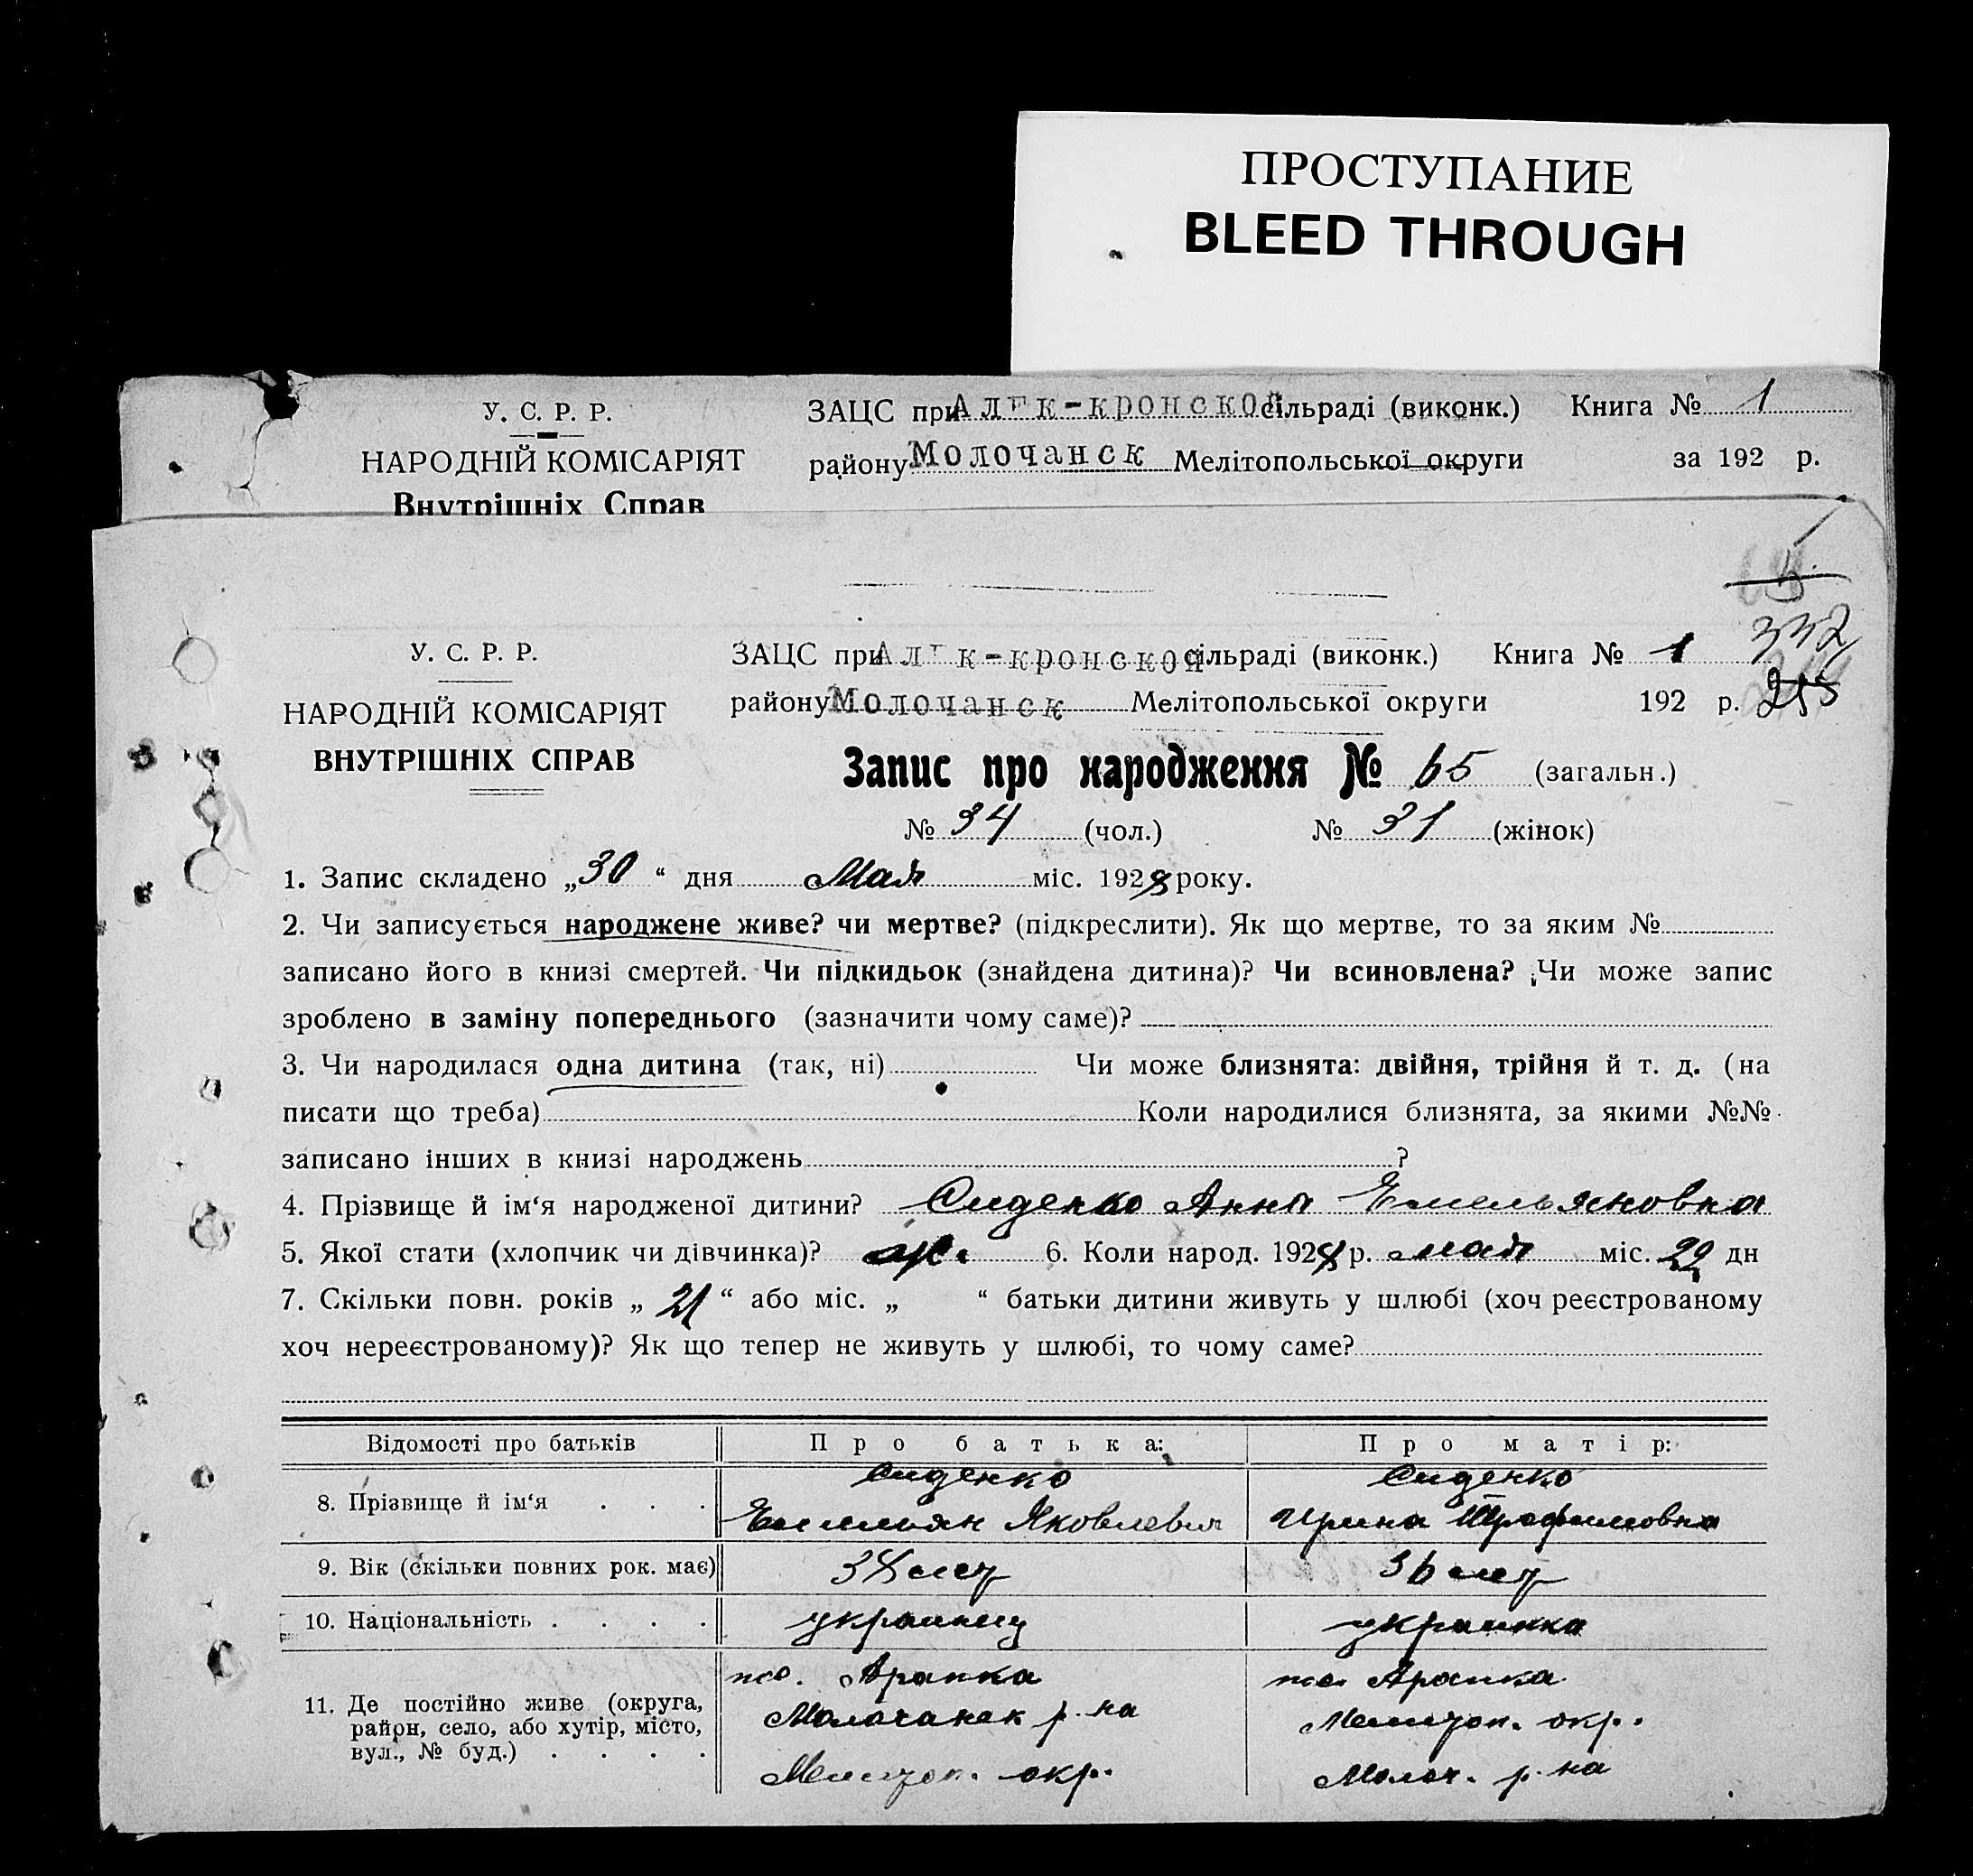 ПРОСТУПАНИЕ
BLEED THROUGH
У. С. Р. Р.
НАРОДНІЙ КОМІСАРІЯТ
Внутрішніх Справ
ЗАЦС при Алек-кронской сільраді (виконк.) Книга № 1
району Молочанск Мелітопольської округи за 192 р.
332
255
У. С. Р. Р.
НАРОДНІЙ КОМІСАРІЯТ
ВНУТРІШНІХ СПРАВ
ЗАЦС при Алек-кронской сільраді (виконк.) Книга № 1
району Молочанск Мелітопольської округи 192 р.
Запис про народження № 65 (загальн.)
№ 34 (чол.) № 31 (жінок)
1. Запис складено „30“ дня Мая міс. 1928 року.
2. Чи записується народжене живе? чи мертве? (підкреслити). Як що мертве, то за яким №
записано його в книзі смертей. Чи підкидьок (знайдена дитина)? Чи всиновлена? Чи може запис
зроблено в заміну попереднього (зазначити чому саме)?
3. Чи народилася одна дитина (так, ні) Чи може близнята: двійня, трійня й т. д. (на
писати що треба) Коли народилися близнята, за якими №№
записано інших в книзі народжень ?
4. Прізвище й ім‘я народженої дитини? Сиденко Анна Емельяновна
5. Якої стати (хлопчик чи дівчинка)? ж. 6. Коли народ. 1928 р. мая міс. 22 дн
7. Скільки повн. років „21“ або міс. „ “ батьки дитини живуть у шлюбі (хоч реєстрованому
хоч нереєстрованому)? Як що тепер не живуть у шлюбі, то чому саме?
Відомості про батьків Про батька: Про матір:
8. Прізвище й ім‘я . . . Сиденко Емельян Яковлевич Сиденко Ирина Трофимовна
9. Вік (скільки повних рок. має) 38 лет 36 лет
10. Національність . . . . украинец украинка
11. Де постійно живе (округа,
район, село, або хутір, місто,
вул., № буд.) . . . .
Молочанск р-на
Мелитоп. окр.
Мелитоп. окр.
Молоч. р-на